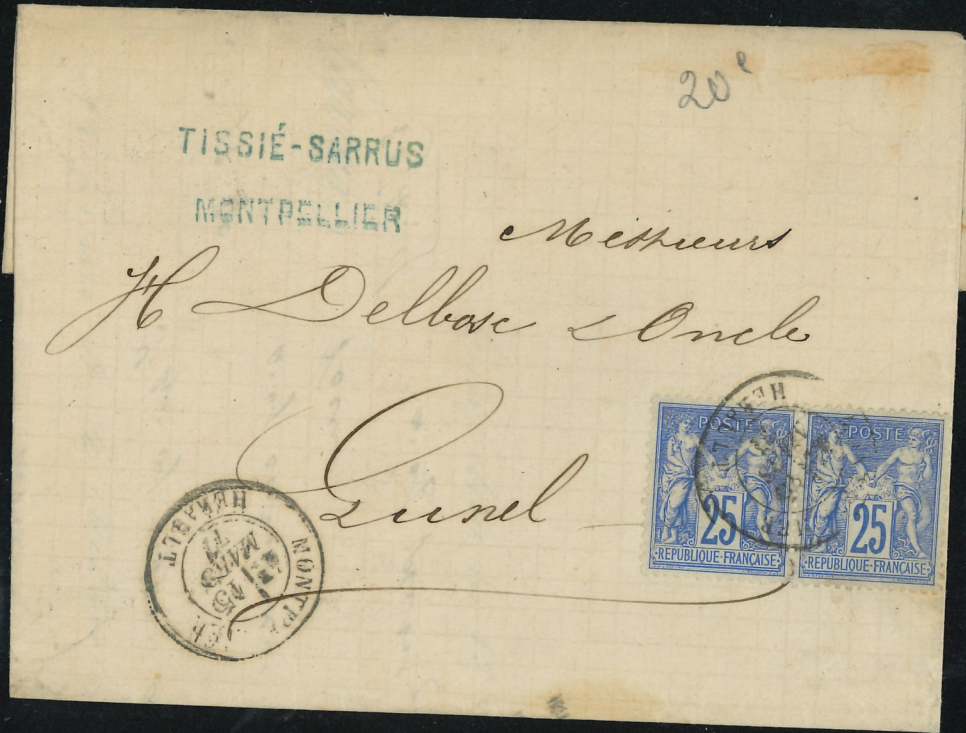 20e
TISSIÉ-SARRUS
MONTPELLIER
Messieurs
H Delbosc & Oncle
Lunel
POSTE
25
REPUBLIQUE FRANÇAISE
POSTE
25
REPUBLIQUE FRANÇAISE
MONTPELLIER
MARS
HERAULT